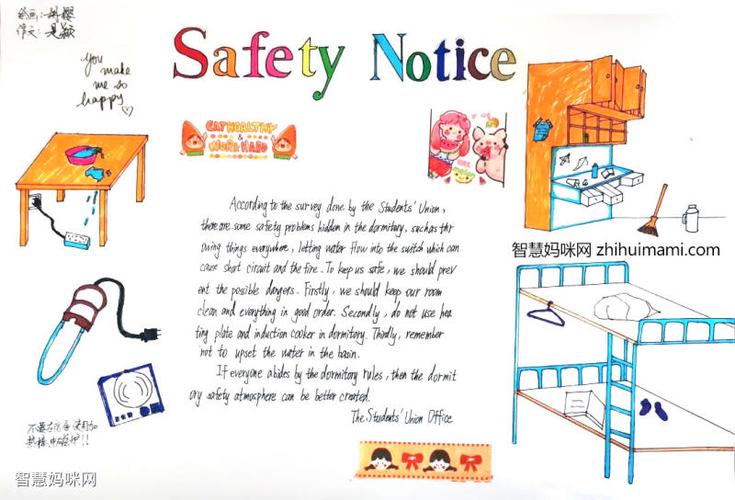 绘画:
作文:
Safety Notice
you
make
me so
happy
EAT HEALTHY
&
WORK HARD
According to the survey done by the Students' Union,
there are some safety problems hidden in the dormitory, such as thr
owing things everywhere, letting water flow into the switch which can
case short circuit and the fire. To keep us safe, we should prev
ent the possible dangers. Firstly, we should keep our room
clean and everything in good order. Secondly, do not use hea
ting plate and induction cooker in dormitory. Thirdly, remember
not to upset the water in the basin.
If everyone abides by the dormitory rules, then the dormit
ory safety atmosphere can be better created.
The Students' Union Office
智慧妈咪网 zhihuimami.com
不要在宿舍使用加
热棒,电磁炉!!
智慧妈咪网